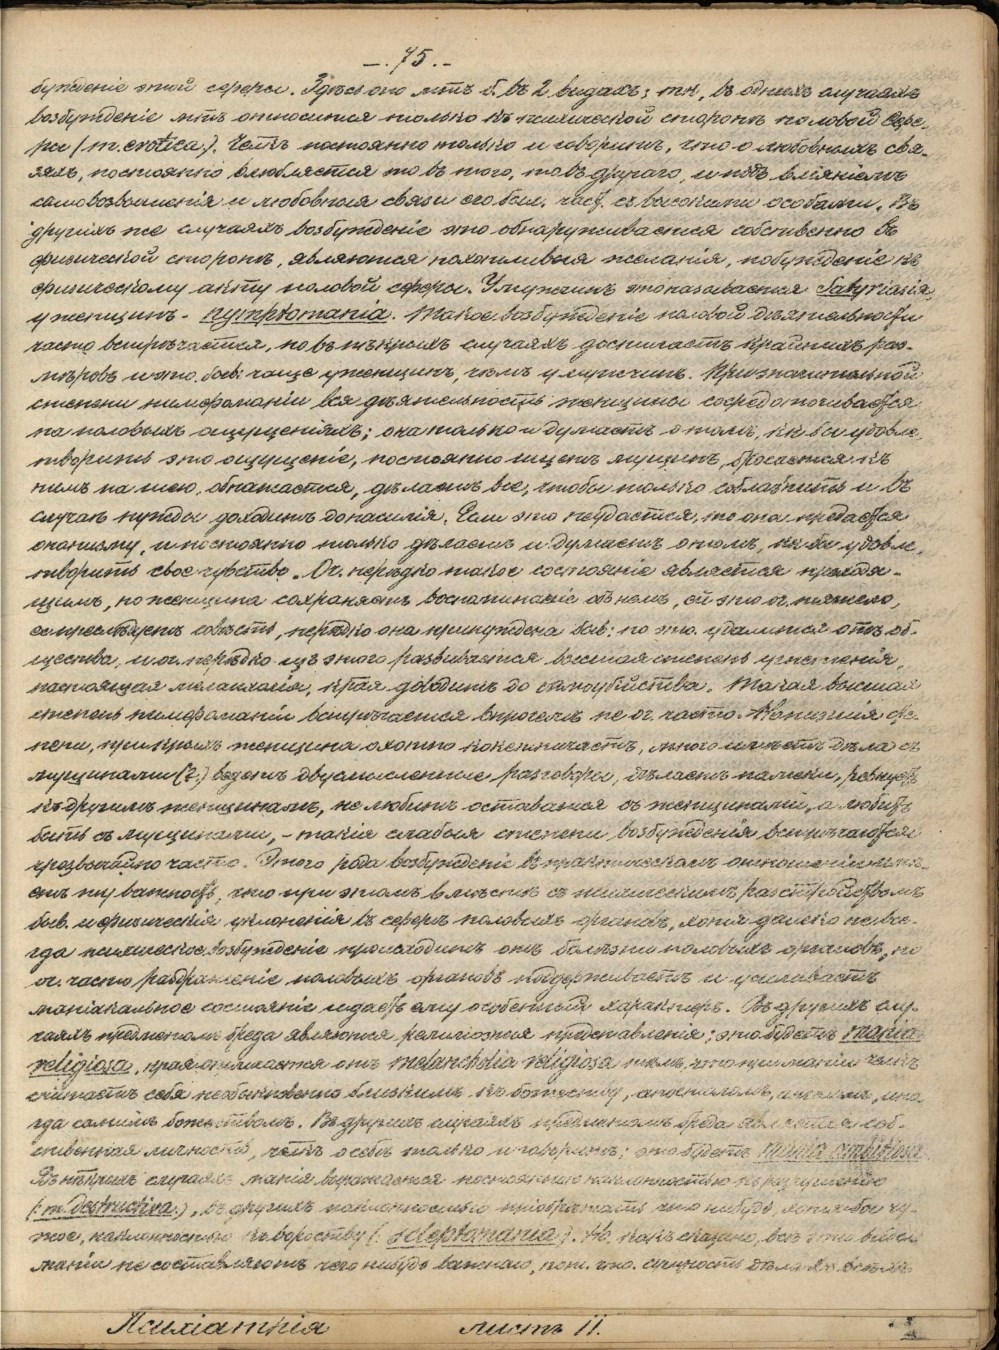 -. 75. -
бужденіе этой сферы. Здѣсь оно мтъ б. въ 2 видахъ; тк, въ однихъ случаяхъ
возбужденіе мтъ относится только къ психической сторонѣ половой сфе-
ры (m. erotica). Челкъ постоянно только и говоритъ, что о любовныхъ свя-
зяхъ, постоянно влюбляется то въ того, то въ другаго, и подъ вліяніемъ
самовозвышенія и любовныя связи его быв. част. съ высокими особами. Въ
другихъ же случаяхъ возбужденіе это обнаруживается собственно въ
физической сторонѣ, являются похотливыя желанія, побужденіе къ
физическому акту половой сферы. У мужчинъ это называется Satyriasis,
у женщинъ - nymphomania. Такое возбужденіе половой дѣятельности
часто встрѣчается, но въ нѣкрыхъ случаяхъ достигаетъ крайнихъ раз-
мѣровъ и это быв: чаще у женщинъ, чѣмъ у мужчинъ. При значительной
степени нимфоманіи вся дѣятельность женщины сосредоточивается
на половыхъ ощущеніяхъ; она только и думаетъ о томъ, кк бы удовле-
творить это ощущеніе, постоянно ищетъ мущинъ, бросается къ
нимъ на шею, обнажается, дѣлаетъ все, чтобы только соблазнить и въ
случаѣ нужды доходитъ до насилія. Если это неудается, то она предается
онанизму, и постоянно только дѣлаетъ и думаетъ о томъ, кк бы удовле-
творить свое чувство. Оч. нерѣдко такое состояніе является преходя-
щимъ, но женщина сохраняетъ воспоминаніе объ немъ, ей это оч. тяжело,
ее преслѣдуетъ совѣсть, нерѣдко она принуждена быв: по это. удалится отъ об-
щества, и оч. нерѣдко изъ этого развивается высшая степень угнетенія,
настоящая меланхолія, края доводитъ до самоубійства. Такая высшая
степень нимфоманіи встрѣчается впрочемъ не оч. часто. Но низшія сте-
пени, при крыхъ женщина охотно кокетничаетъ, много имѣетъ дѣла съ
мущинами (?.) ведетъ двусмысленные разговоры, дѣлаетъ намеки, ревнуетъ
къ другимъ женщинамъ, не любитъ оставаться съ женщинами, а любитъ
быть съ мущинами, - такія слабыя степени возбужденія встрѣчаются
чрезвычайно часто. Этого рода возбужденіе въ практическомъ отношеніи имѣ-
етъ ту важность, что при этомъ вмѣстѣ съ психическимъ разстройствомъ
быв. и физическія уклоненія въ сферѣ половыхъ органовъ, хотя далеко не все-
гда психическое возбужденіе происходитъ отъ болѣзни половыхъ органовъ, но
оч. часто раздраженіе половыхъ органовъ поддерживаетъ и усиливаетъ
маніакальное состояніе и даетъ ему особенный характеръ. Въ другихъ слу-
чаяхъ предметомъ бреда являются религіозныя представленія; это будетъ mania
religiosa, края отличается отъ melancholia religiosa тѣмъ, что при маніи челкъ
считаетъ себя необыкновенно близкимъ къ божеству, апостоломъ, ино-
гда самимъ божествомъ. Въ другихъ случаяхъ предметомъ бреда является соб-
ственная личность, челкъ о себѣ только и говоритъ; это будетъ mania ambitiosa.
Въ нѣкрыхъ случаяхъ манія выражается постоянною наклонностью къ разрушенію
(: m. destructiva.), въ другихъ наклонностью пріобрѣтать что нибудь, хотя бы чу-
жое, наклонностью къ воровству (: cleptomania). Но, какъ сказано, всѣ эти виды
маніи не составляютъ чего нибудь важнаго, пот. что. сущность дѣла во всѣхъ
Психіатрія листъ 11.